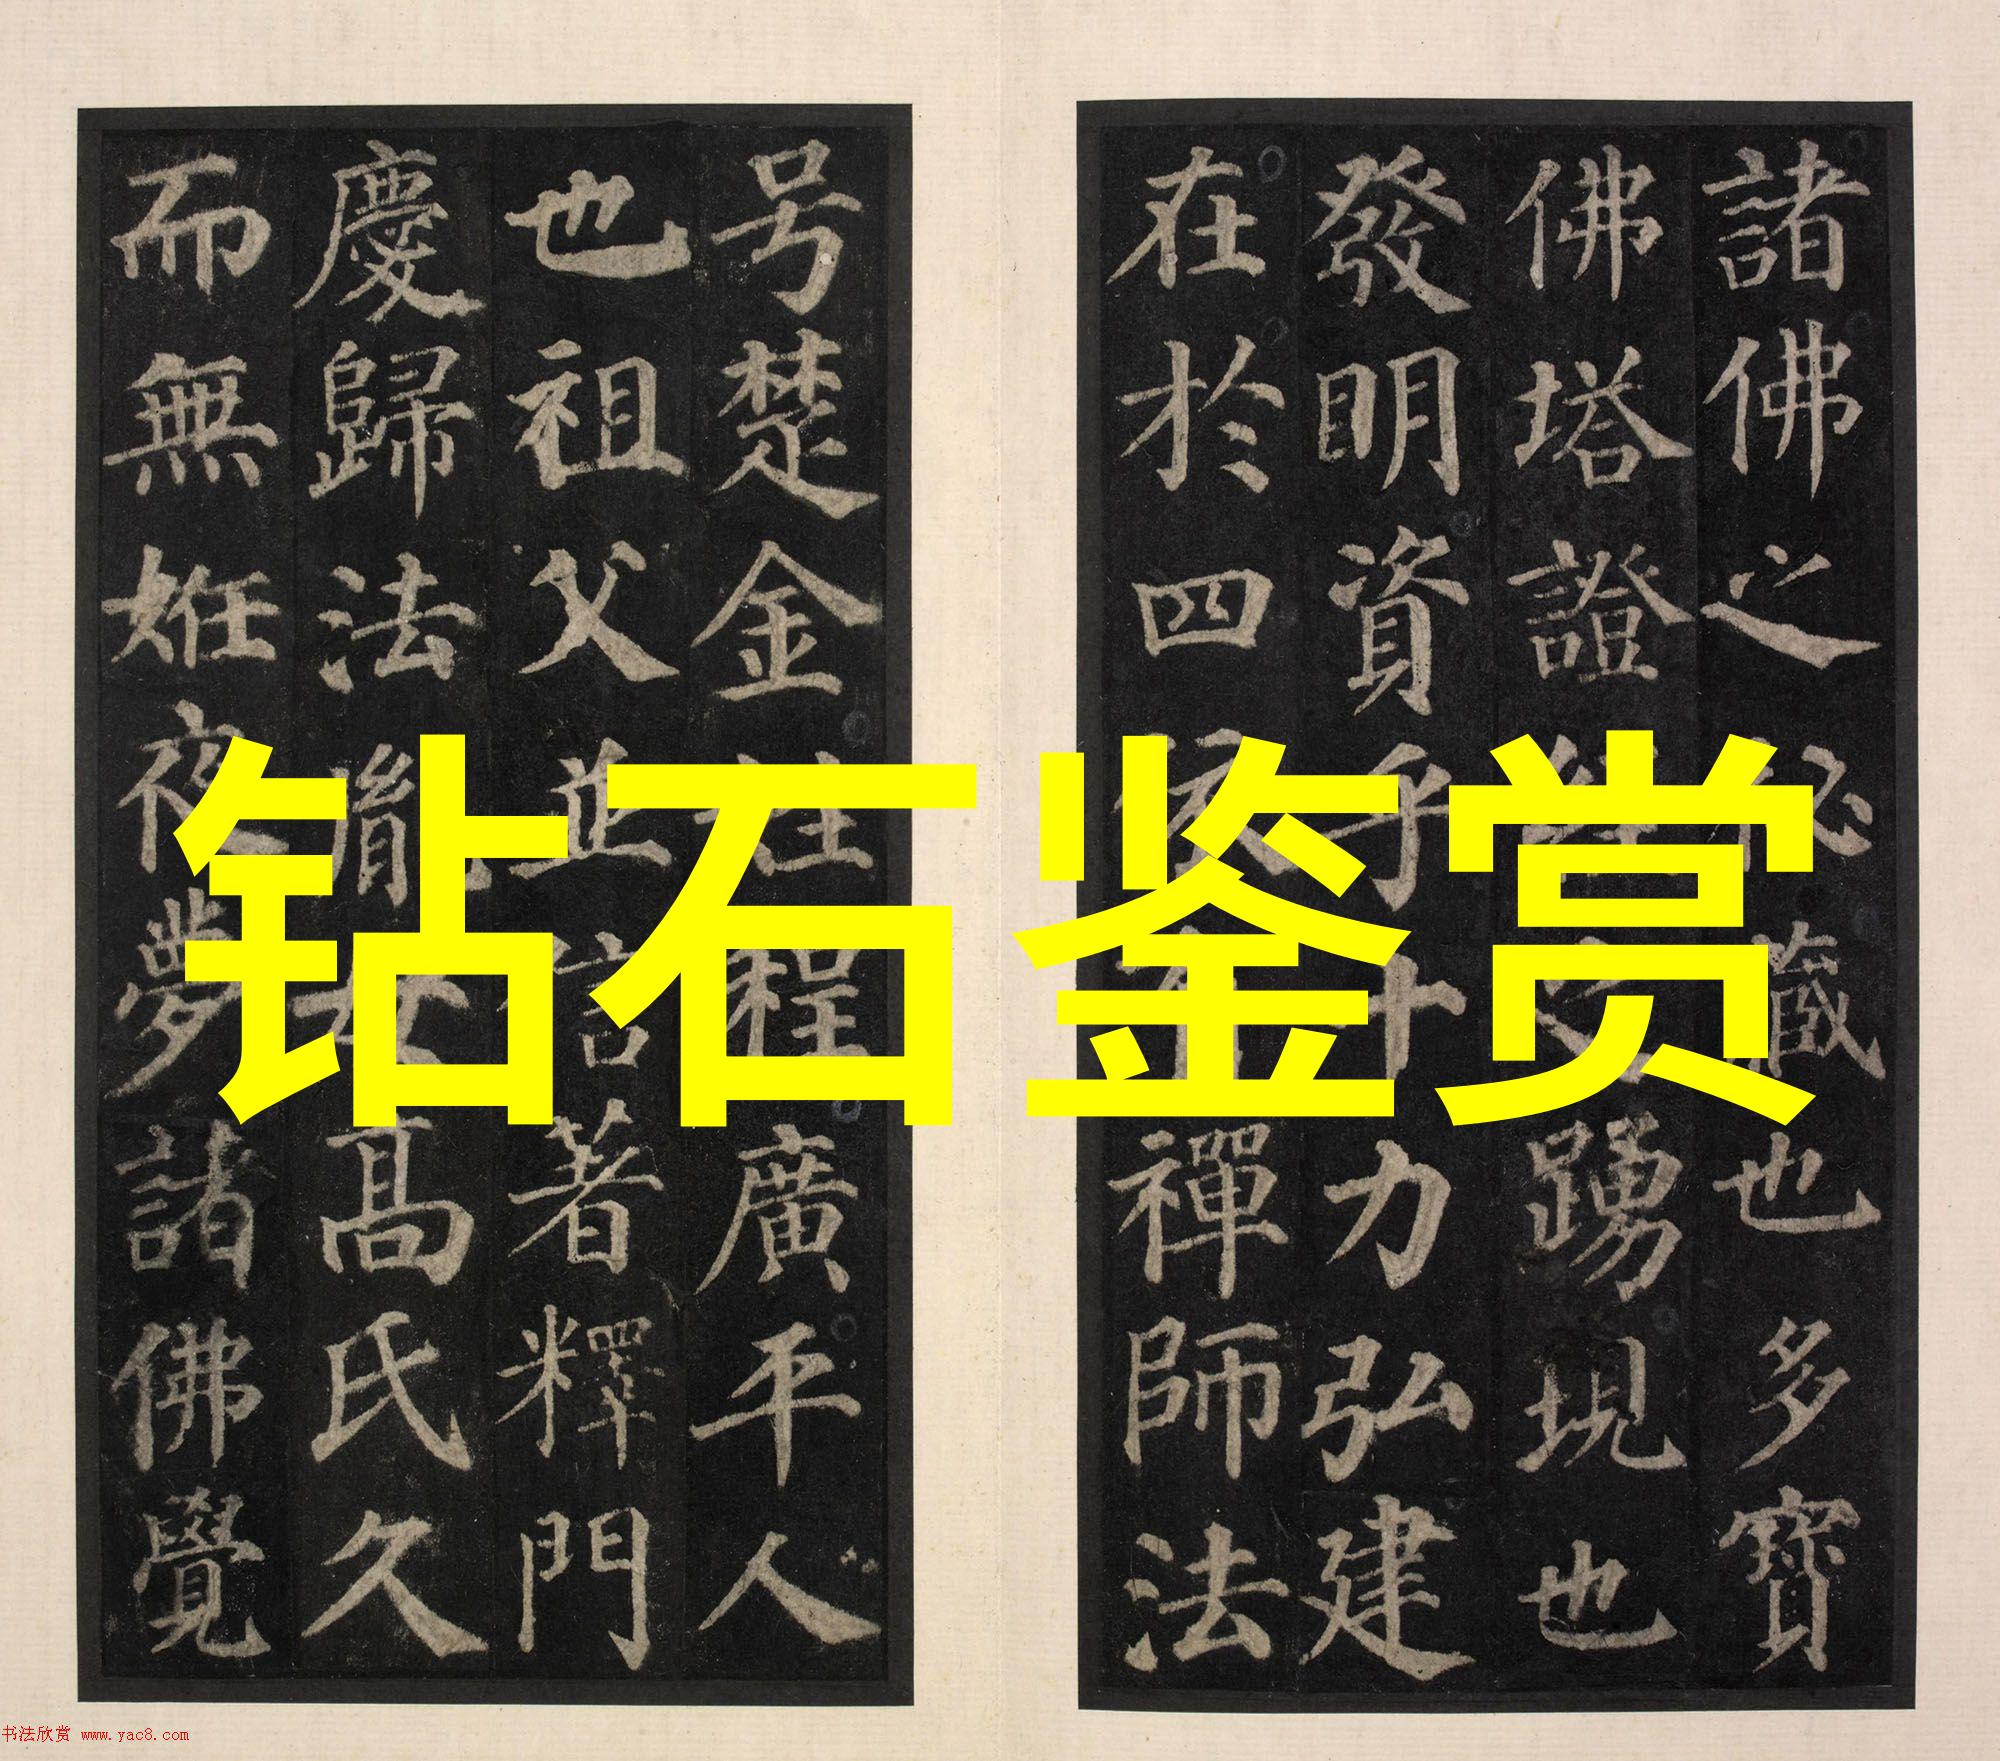 諸佛之秘藏也多寶
佛塔證經之踴現也
發明資乎十力弘建
在於四依有禪師法
号楚金姓程廣平人
也祖父並信著釋門
慶歸法胤母高氏久
而無姙夜夢諸佛覺
钻石鉴赏
书法欣赏 www.yac8.com